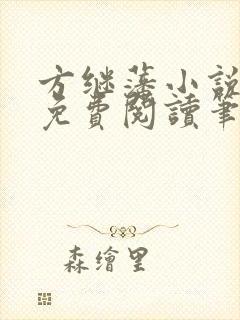 方继藩小說
免費閱讀筆
森繪里